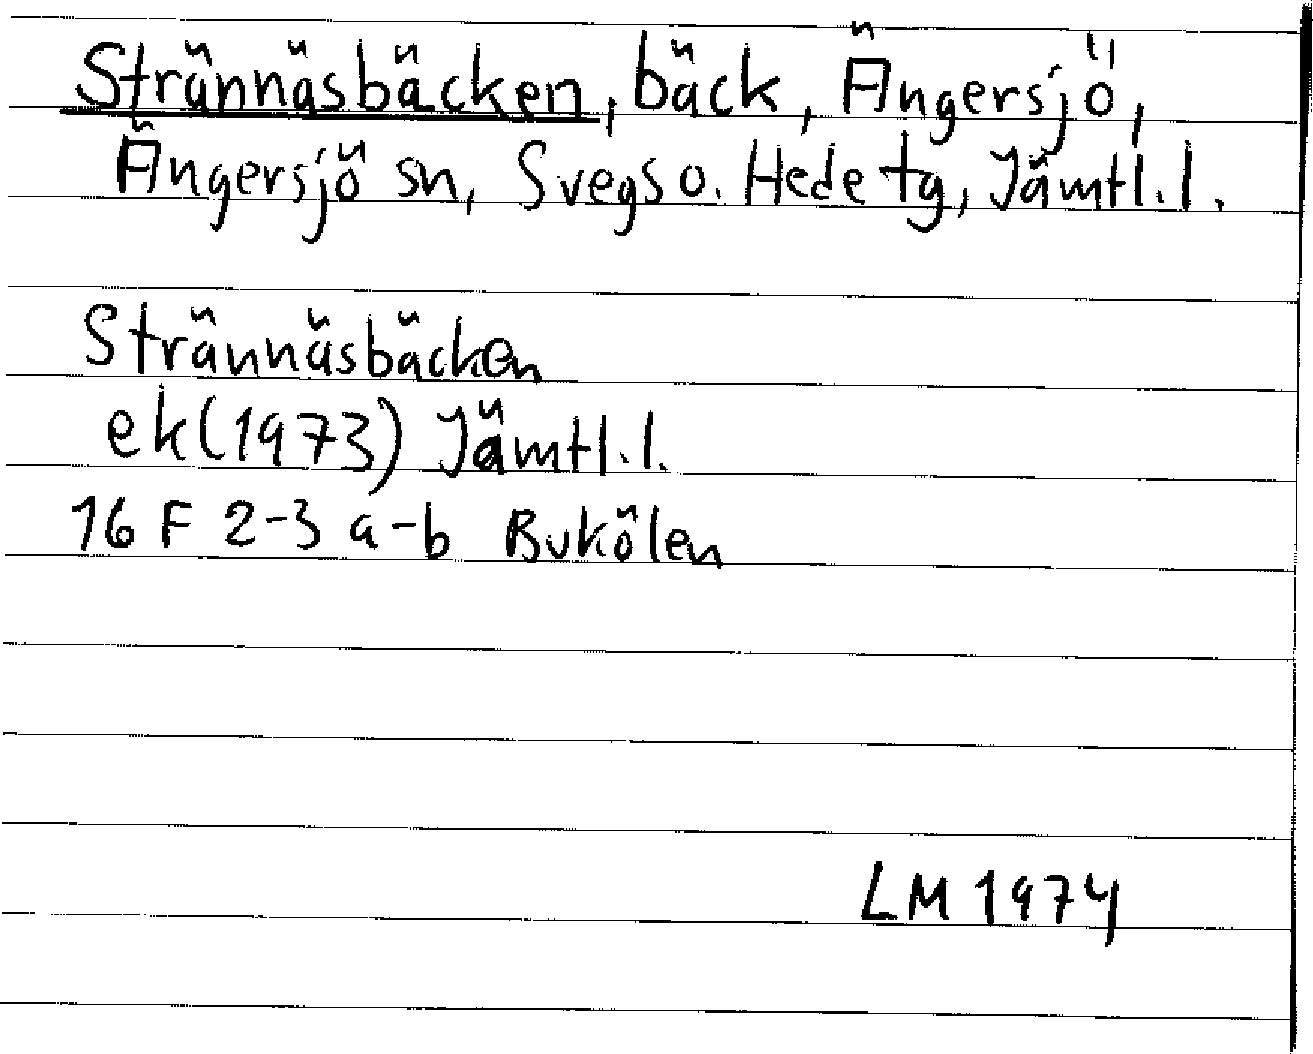 Strännäsbäcken, bäck, Ängersjö,
Ängersjö sn, Svegs o. Hede tg, Jämtl.l.
Strännäsbäcken
ek(1973) Jämtl.l.
16 F 2-3 a-b Bukölen
LM 1974